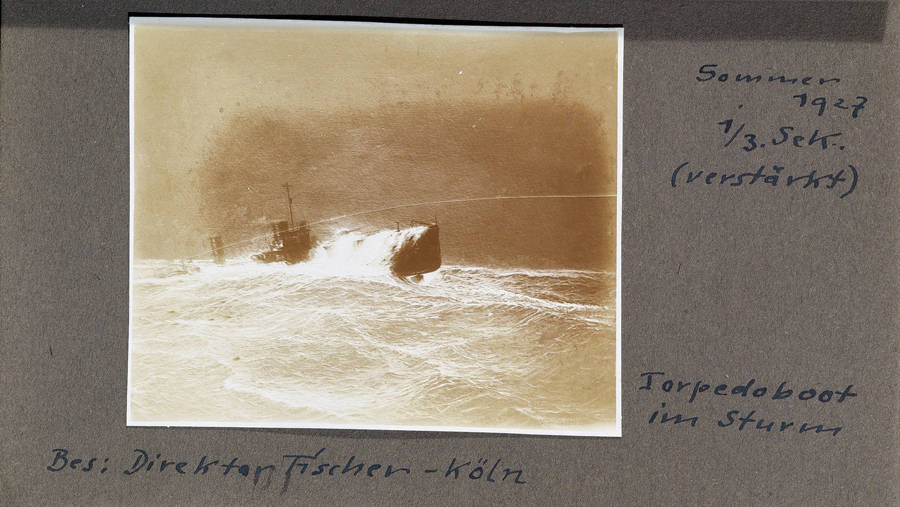 Sommer
1927
1/3. Sek.
(verstärkt)
Torpedoboot
im Sturm
Bes: Direktor Fischer - Köln